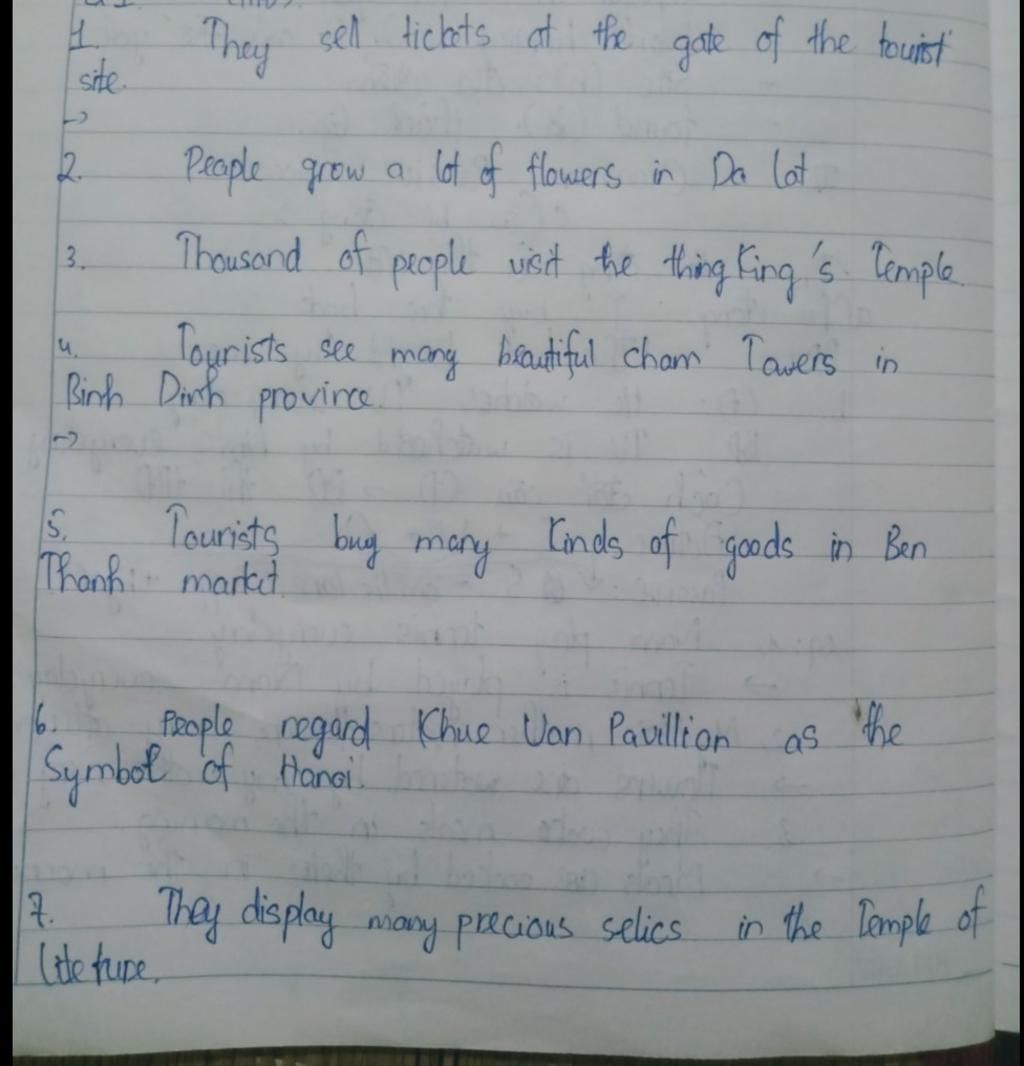 1. They sell tickets at the gate of the tourist
site.
->
2. People grow a lot of flowers in Da lat
3. Thousand of people visit the thing King's Temple.
4. Tourists see many beautiful cham Towers in
Binh Dinh province.
->
5. Tourists buy many kinds of goods in Ben
Thanh market.
6. People regard Khue Van Pavillion as the
Symbol of Hanoi.
7. They display many precious selics in the Temple of
liteture.